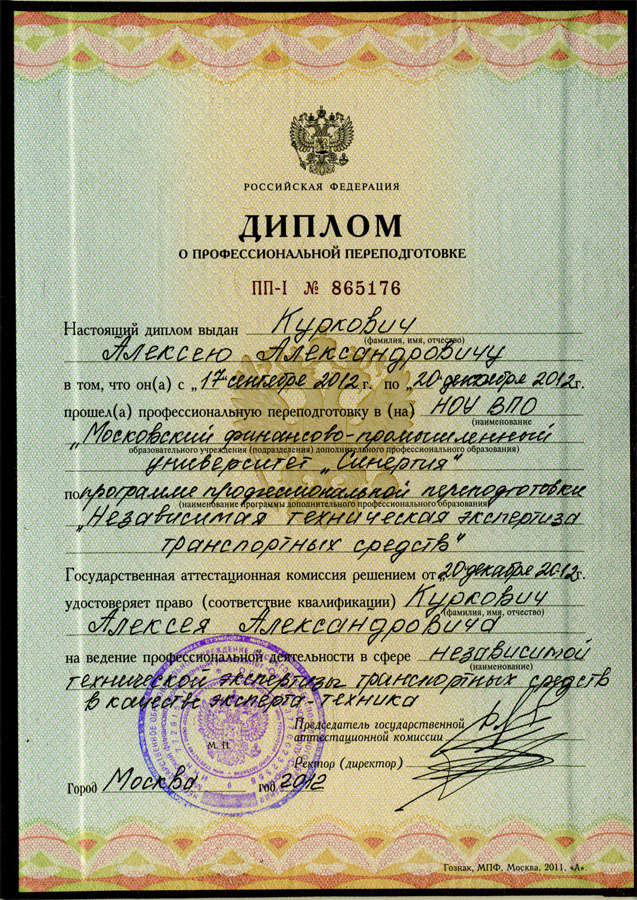 РОССИЙСКАЯ ФЕДЕРАЦИЯ
ДИПЛОМ
О ПРОФЕССИОНАЛЬНОЙ ПЕРЕПОДГОТОВКЕ
ПП-I № 865176
Настоящий диплом выдан Куркович
(фамилия, имя, отчество)
Алексею Александровичу
в том, что он(а) с „17 сентября 2012 г. по „20 декабря 2012 г.
прошел(а) профессиональную переподготовку в (на) НОУ ВПО
(наименование
„Московский финансово-промышленный
образовательного учреждения (подразделения) дополнительного профессионального образования)
университет „Синергия"
по программе профессиональной переподготовки
(наименование программы дополнительного профессионального образования)
„Независимая техническая экспертиза
транспортных средств"
Государственная аттестационная комиссия решением от „20 декабря 2012 г.
удостоверяет право (соответствие квалификации) Куркович
(фамилия, имя, отчество)
Алексея Александровича
на ведение профессиональной деятельности в сфере независимой
(наименование)
технической экспертизы транспортных средств
в качестве эксперта-техника
Председатель государственной
аттестационной комиссии
М. П.
Ректор (директор)
Город Москва год 2012
Гознак, МПФ, Москва, 2011, «А».